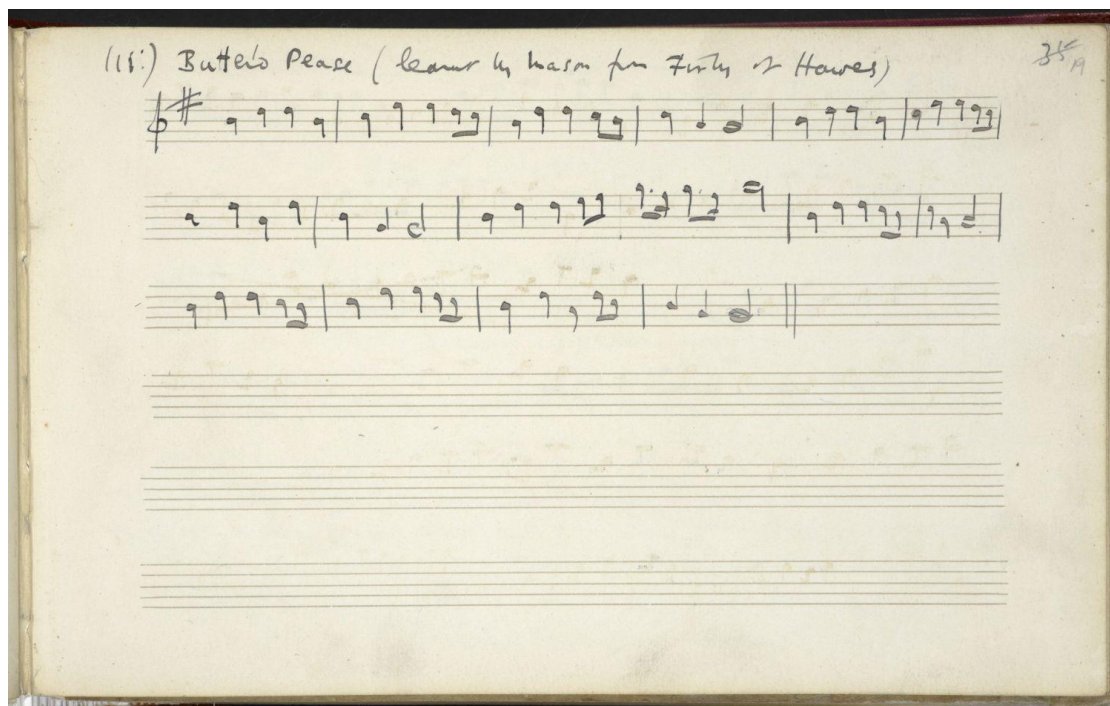 (15:) Butter'd Pease (learnt by Mason from Firth of Hawes)
35
19